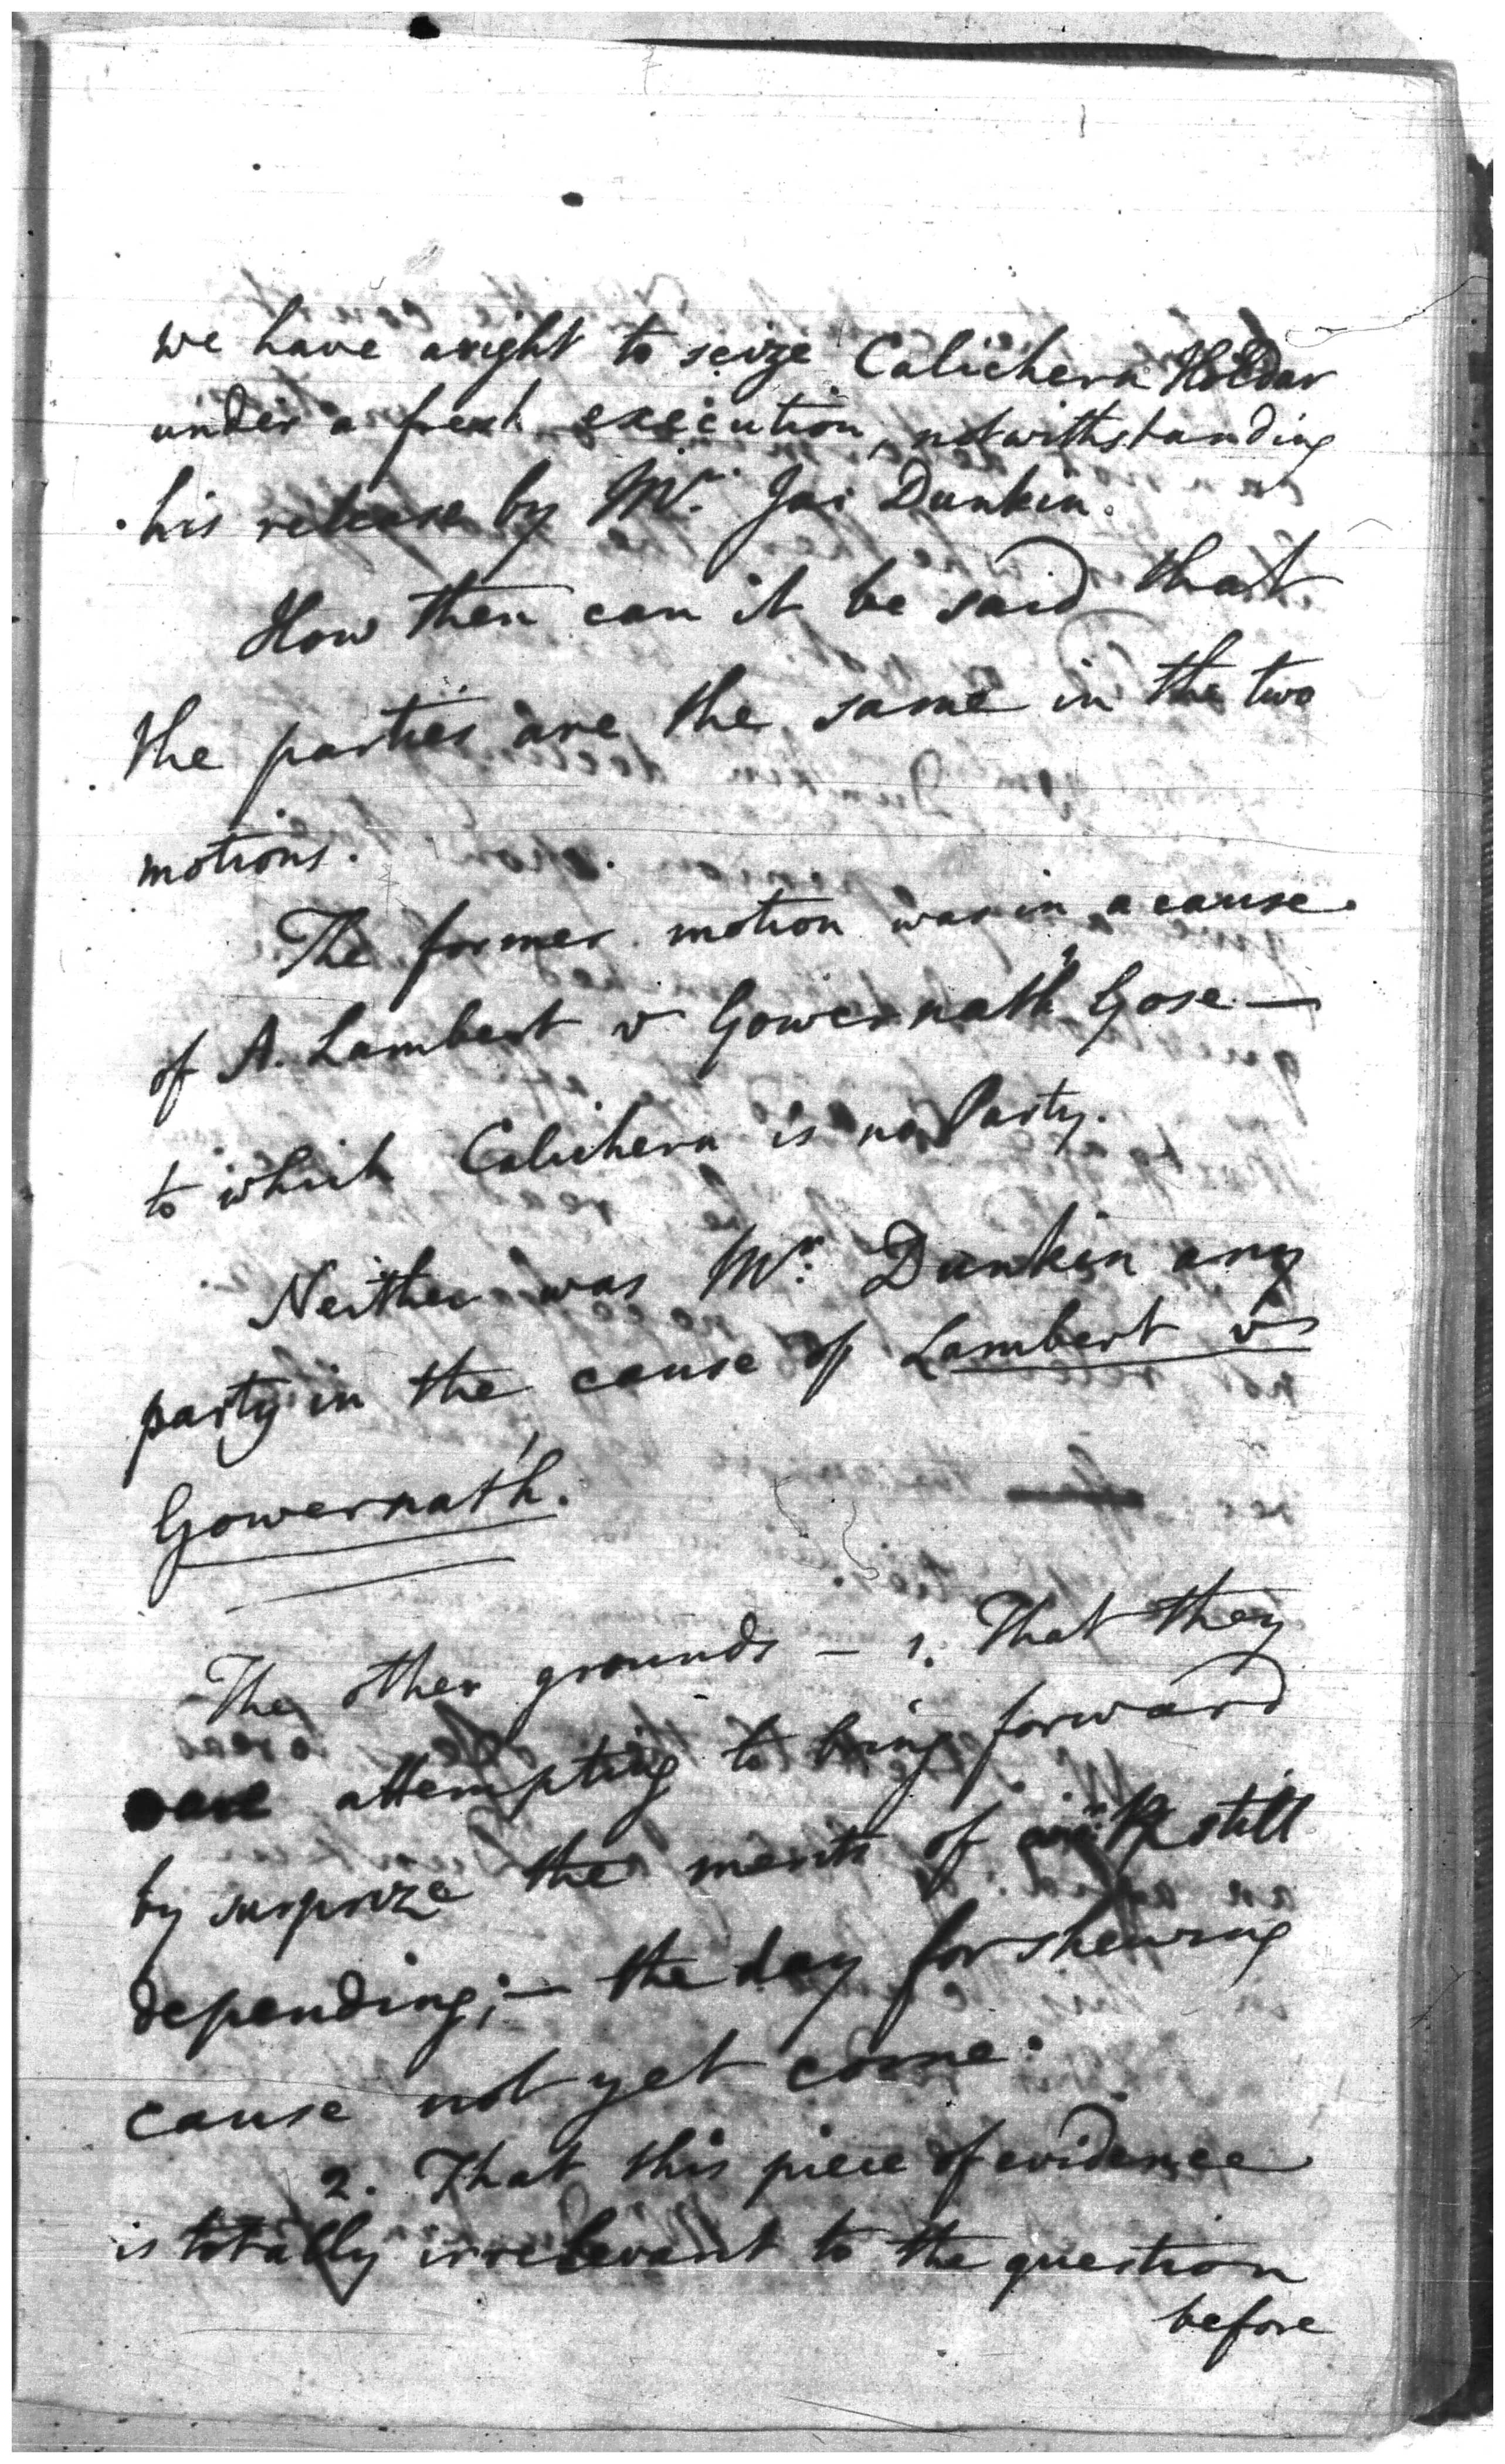 we have a right to seize Calichern Holdar
under a fresh execution, notwithstanding
his release by Mr. Jas Dunkin.
How then can it be said that
the parties are the same in the two
motions.
The former motion was in a cause
of A. Lambert v Gowernath Gose —
to which Calichern is no Party.
Neither was Mr. Dunkin any
party in the cause of Lambert vs
Gowernath.
The other grounds — 1. That they
are attempting to bring forward
by surprize the merits of still
depending; — the day for shewing
cause not yet come.
2. That this piece of evidence
is totally irrelevant to the question
before